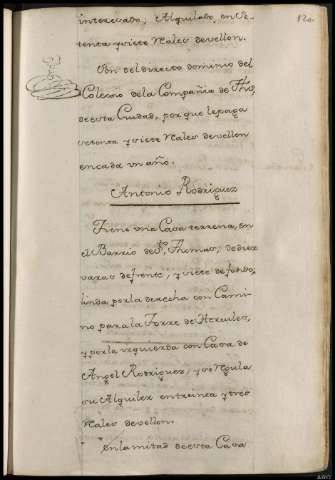 120
interesado; Alquilada, en Se-
tenta y siete Reales de vellon.
Son del directo dominio del
Colexio de la Compañia de Jhs,
de esta Ciudad, por que le paga
setenta y siete Reales de vellon
en cada un año.
Antonio Rodriguez
Tiene una Casa terrena, en
el Barrio de Sto. Thomas, de diez
varas de frente, y siete de fondo,
linda por la derecha con Cami-
no para la Torre de Hercules,
y por la izquierda con Casa de
Angel Rodriguez; y se Regula
su Alquiler en treinta y tres
Reales de vellon.
En la mitad de esta Casa